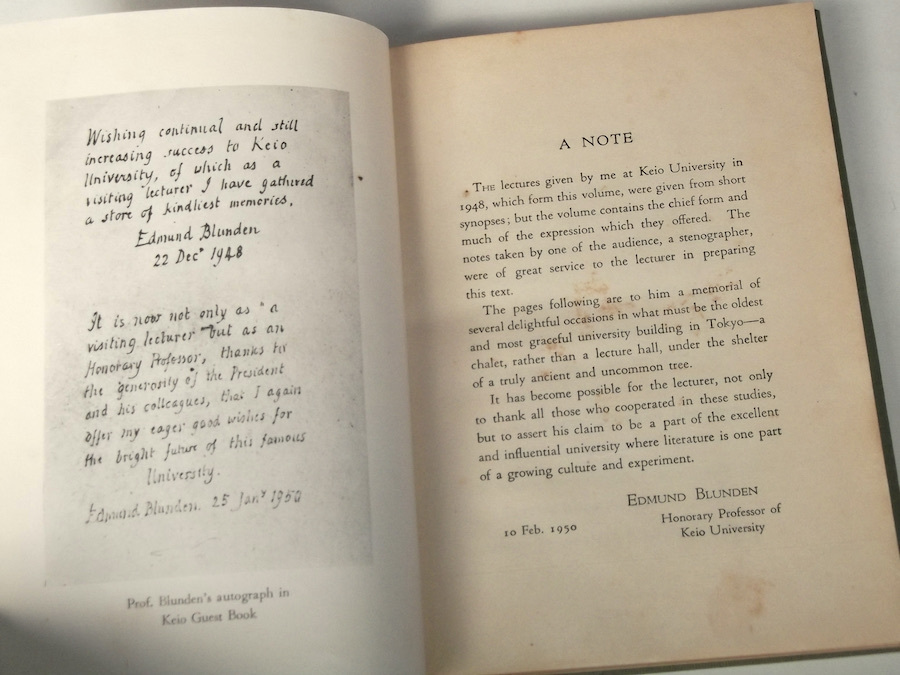 Wishing continual and still
increasing success to Keio
University, of which as a
visiting lecturer I have gathered
a store of kindliest memories.
Edmund Blunden
22 Decr 1948
It is now not only as a
visiting lecturer but as an
Honorary Professor, thanks to
the generosity of the President
and his colleagues, that I again
offer my eager good wishes for
the bright future of this famous
University.
Edmund Blunden. 25 Jany 1950
Prof. Blunden's autograph in
Keio Guest Book
A NOTE
THE lectures given by me at Keio University in
1948, which form this volume, were given from short
synopses; but the volume contains the chief form and
much of the expression which they offered. The
notes taken by one of the audience, a stenographer,
were of great service to the lecturer in preparing
this text.
The pages following are to him a memorial of
several delightful occasions in what must be the oldest
and most graceful university building in Tokyo—a
chalet, rather than a lecture hall, under the shelter
of a truly ancient and uncommon tree.
It has become possible for the lecturer, not only
to thank all those who cooperated in these studies,
but to assert his claim to be a part of the excellent
and influential university where literature is one part
of a growing culture and experiment.
EDMUND BLUNDEN
Honorary Professor of
Keio University
10 Feb. 1950